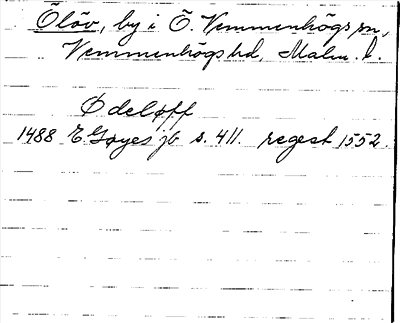 Ölöv, by i Ö. Vemmenhögs sn,
Vemmenhögs hd, Malm. l.
Ødeløff
1488 E Gøyes jb s. 411. regest 1552.